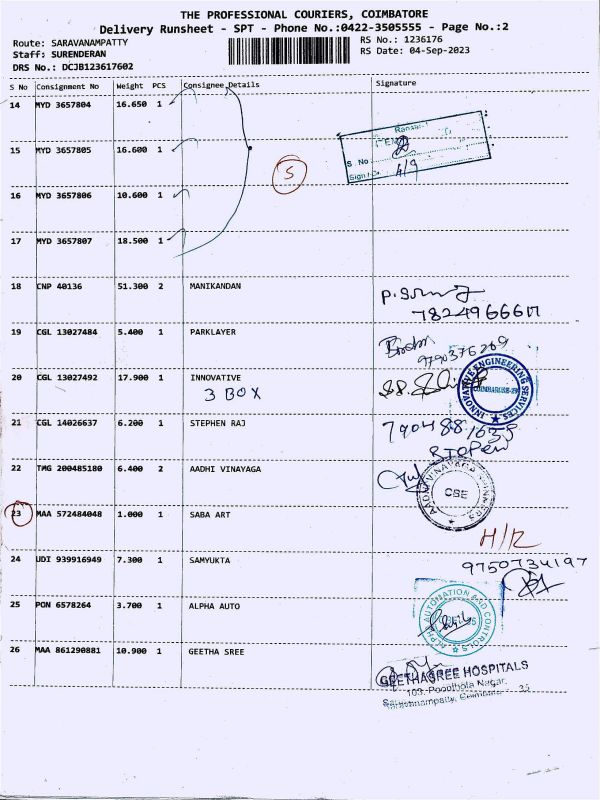 THE PROFESSIONAL COURIERS, COIMBATORE
Delivery Runsheet - SPT - Phone No.:0422-3505555 - Page No.:2
Route: SARAVANAMPATTY
Staff: SURENDERAN
DRS No.: DCJB123617602
RS No.: 1236176
RS Date: 04-Sep-2023
S No Consignment No Weight PCS Consignee Details Signature
14 MYD 3657804 16.650 1
15 MYD 3657805 16.600 1
S
S. No
4/9
16 MYD 3657806 10.600 1
17 MYD 3657807 18.500 1
18 CNP 40136 51.300 2 MANIKANDAN
19 CGL 13027484 5.400 1 PARKLAYER
9790376269
20 CGL 13027492 17.900 1 INNOVATIVE
3 BOX
INNOVATIVE ENGINEERING SERVICES
21 CGL 14026637 6.200 1 STEPHEN RAJ
22 TMG 200485180 6.400 2 AADHI VINAYAGA
CBE
23 MAA 572484048 1.000 1 SABA ART
H/R
24 UDI 939916949 7.300 1 SAMYUKTA
9750734197
25 PON 6578264 3.700 1 ALPHA AUTO
ALPHA AUTOMATION AND CONTROLS
26 MAA 861290881 10.900 1 GEETHA SREE
GEETHASREE HOSPITALS